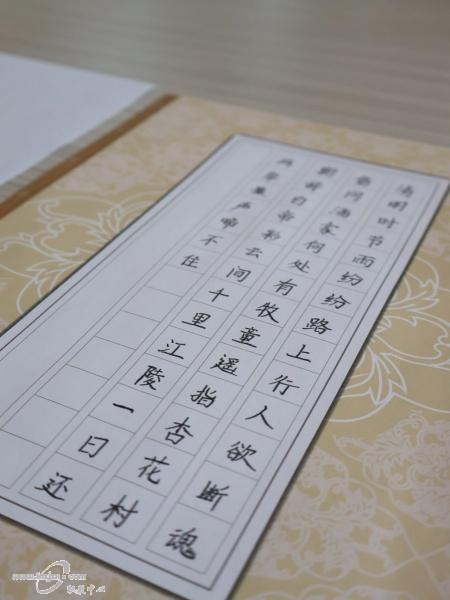 清明时节雨纷纷路上行人欲断魂
借问酒家何处有牧童遥指杏花村
朝辞白帝彩云间千里江陵一日还
两岸猿声啼不住